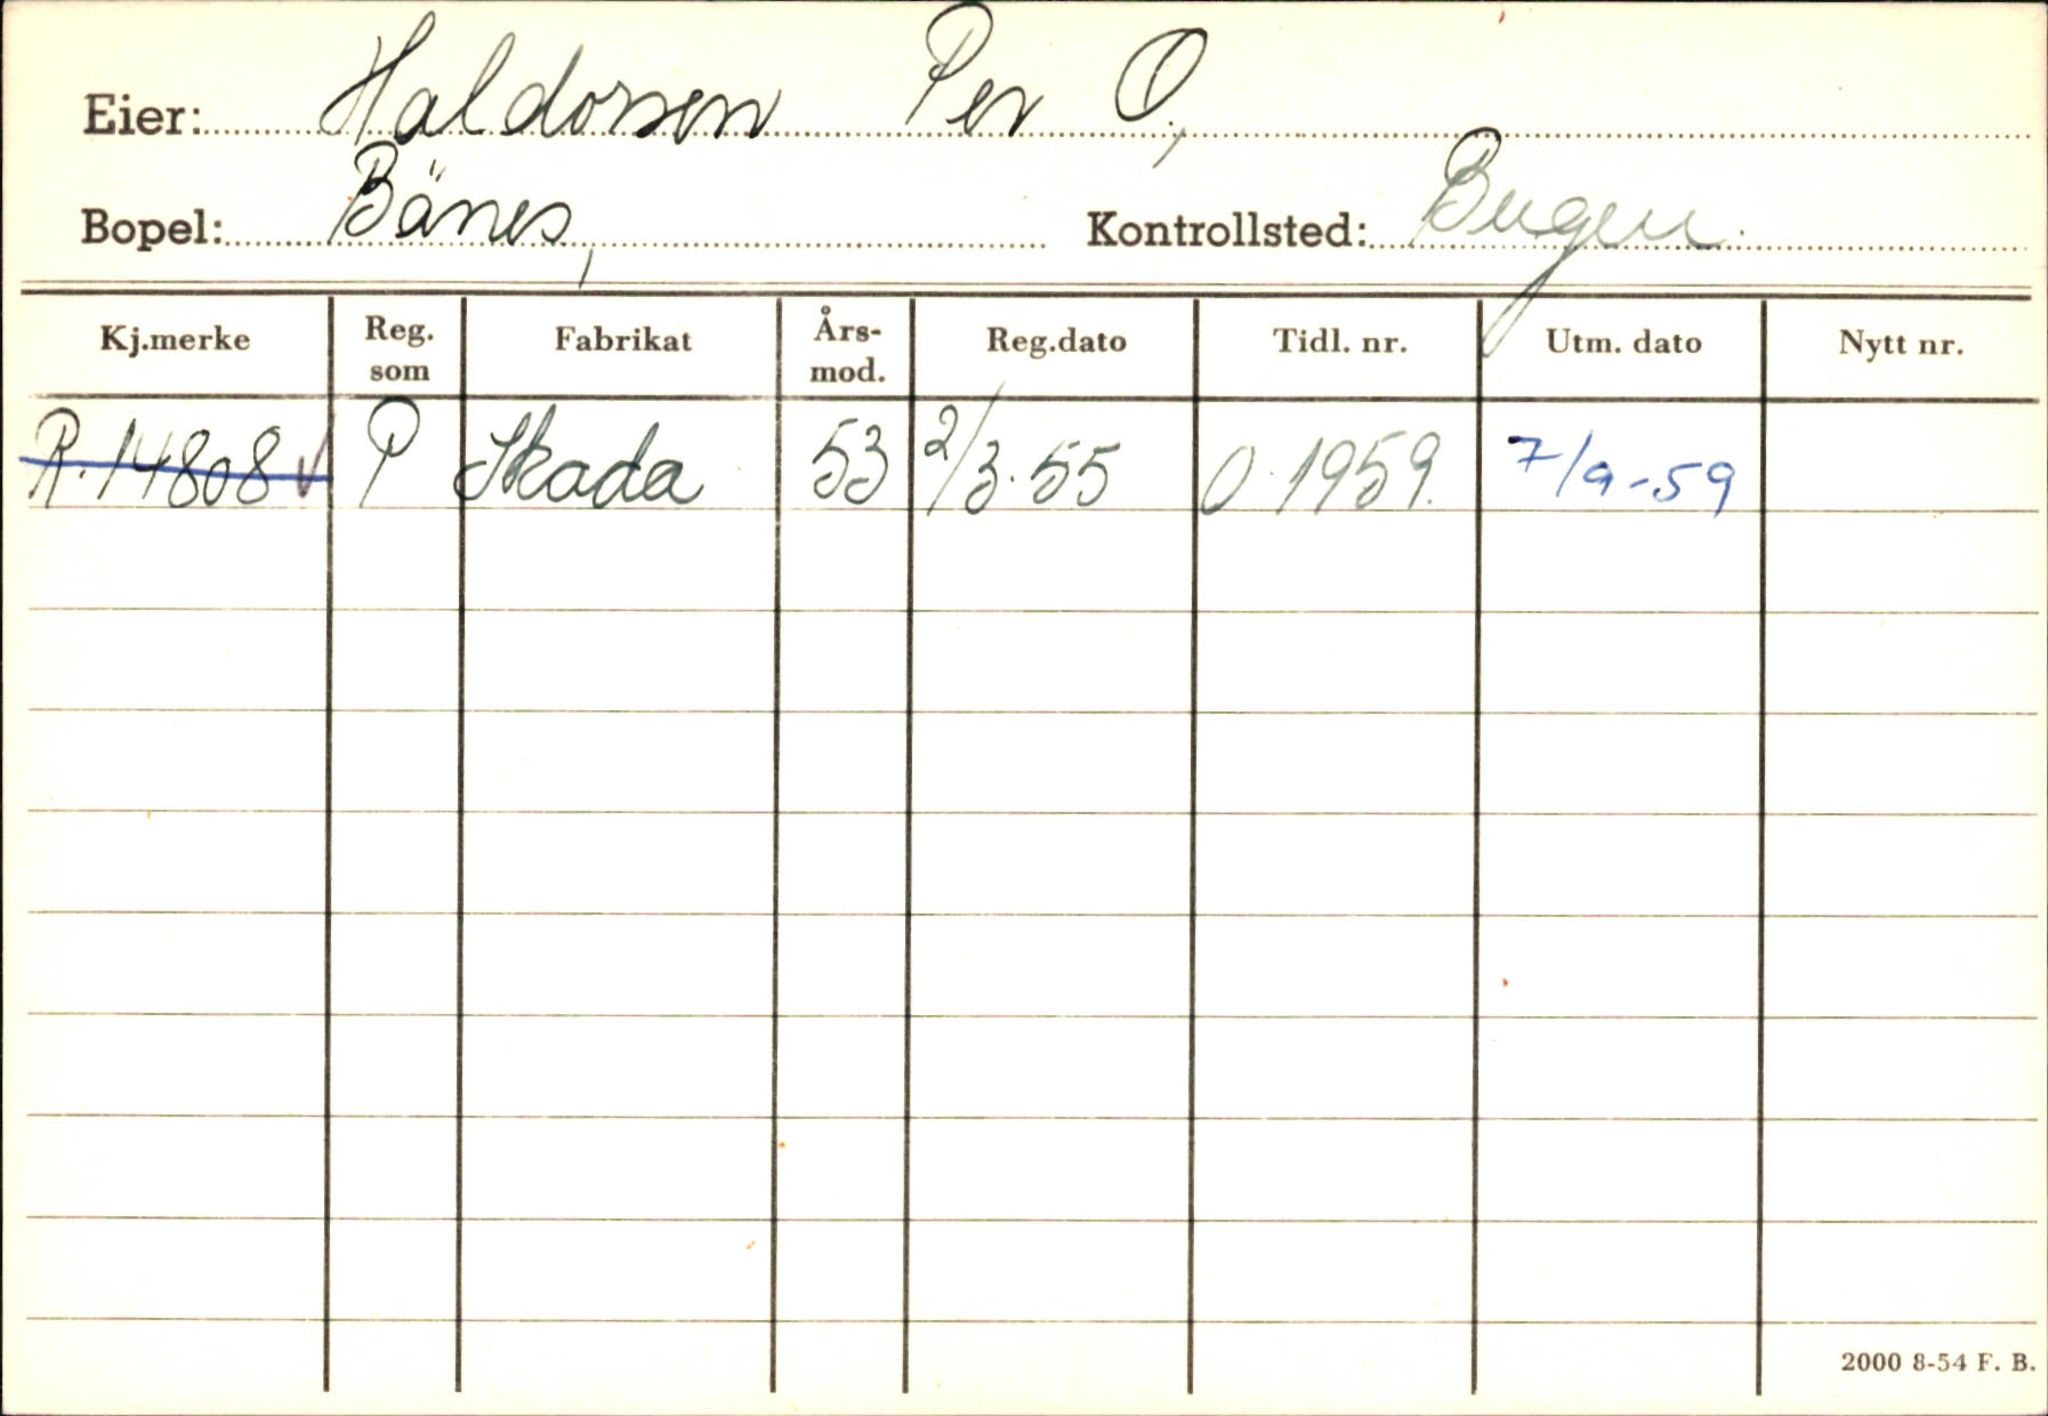 Eier: Haldorsen Per O.,
Bopel: Bänes, Kontrollsted: Bugen.
Kj.merke Reg. som Fabrikat Års-mod. Reg.dato Tidl. nr. Utm. dato Nytt nr.
R.14808 P Skoda 53 2/3.55 O.1959. 7/9-59
2000 8-54 F. B.